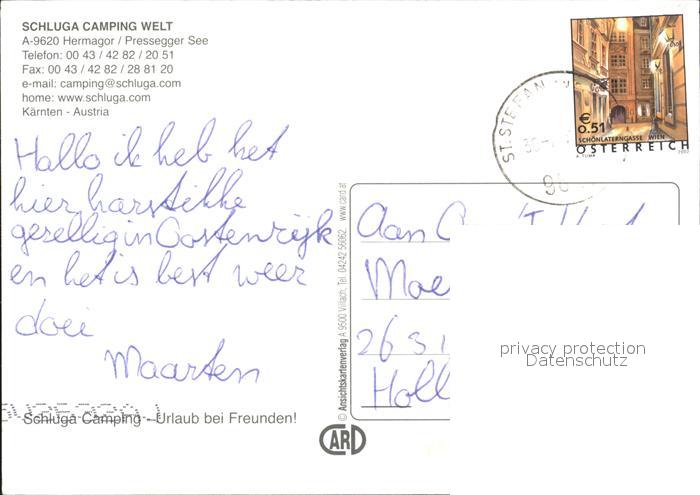 SCHLUGA CAMPING WELT
A-9620 Hermagor / Pressegger See
Telefon: 00 43 / 42 82 / 20 51
Fax: 00 43 / 42 82 / 28 81 20
e-mail: camping@schluga.com
home: www.schluga.com
Kärnten - Austria
Hallo ik heb het
hier harstikke
gesellig in Oostenrijk
en het is best weer
doei
Maarten
Schluga Camping - Urlaub bei Freunden!
© Ansichtskartenverlag A 9500 Villach, Tel. 04242 56062, www.card.at
CARD
ST. STEFAN
€ 0.51
SCHÖNLATERNGASSE WIEN
ÖSTERREICH
A. TUMA
Aan
Moe
26 S
Holl
privacy protection
Datenschutz